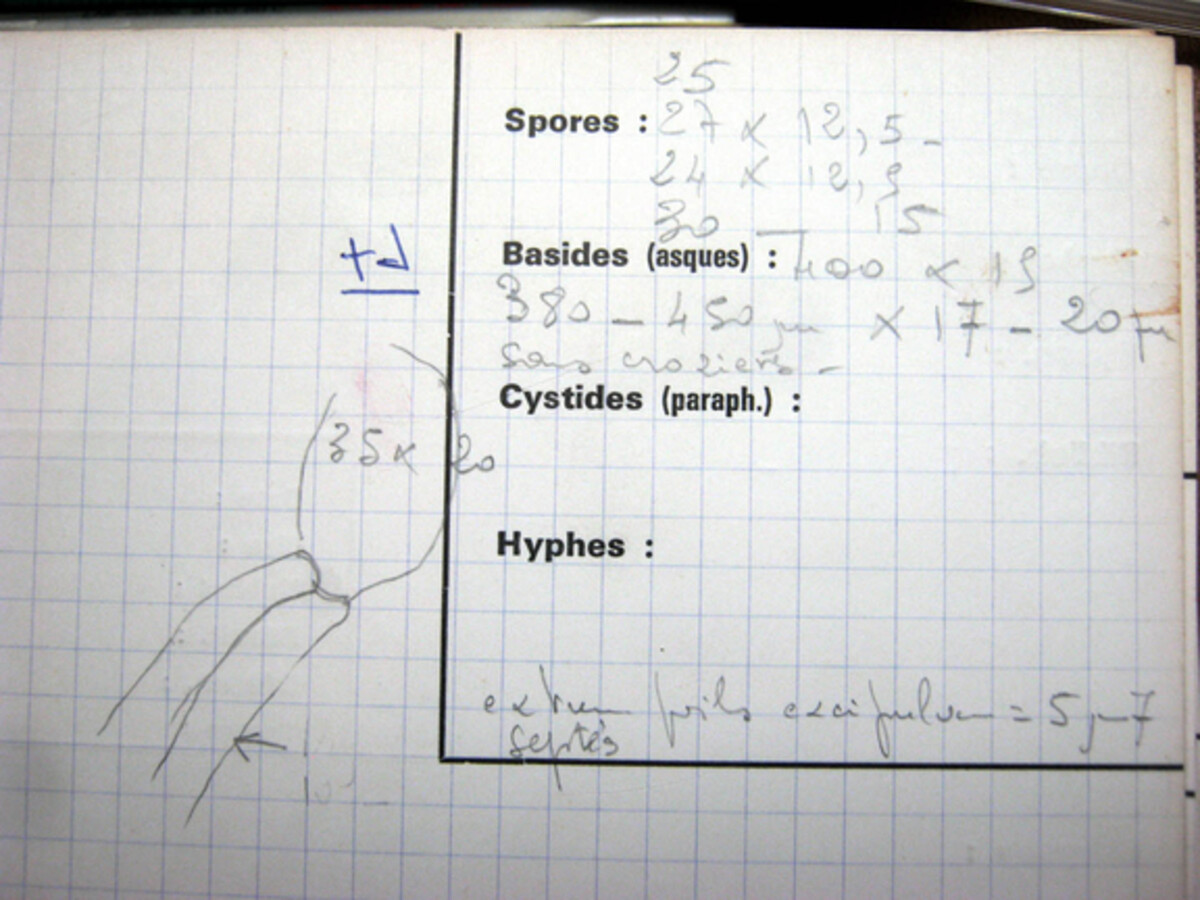 25
Spores : 27 x 12,5 -
24 x 12,5
30 — 15
+d
Basides (asques) : 400 x 15
380 - 450 µm x 17 - 20 µm
sans croziers -
Cystides (paraph.) :
35 x 20
Hyphes :
extrem poils excipulum = 5 µm 7
septés